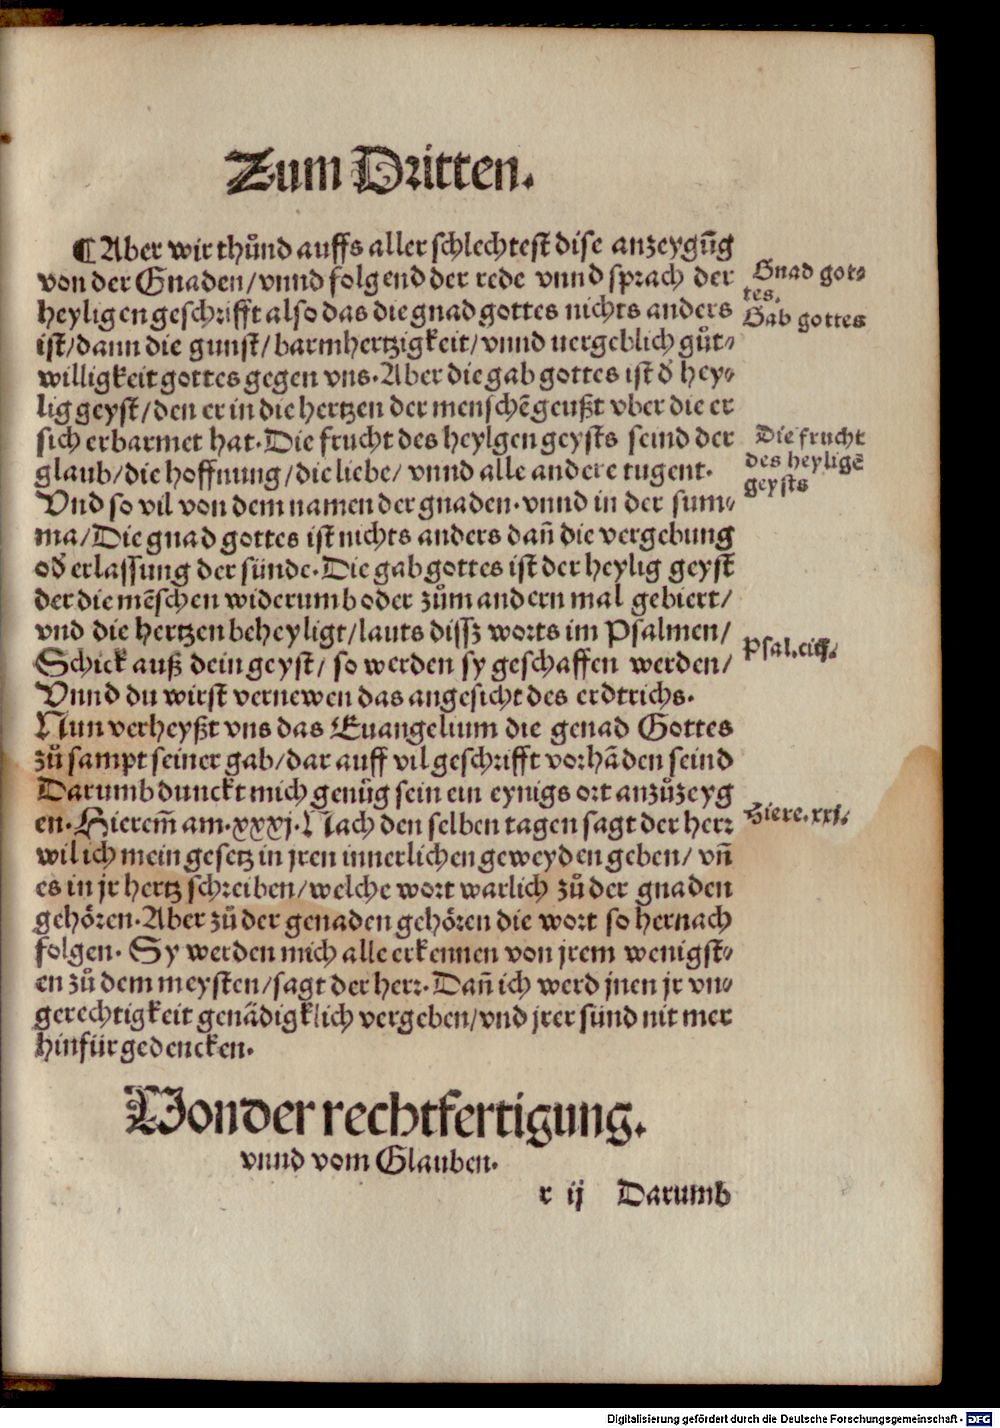 Zum Dritten.
¶ Aber wir thůnd auffs aller schlechtest dise anzeygūg
von der Gnaden/vnnd folgend der rede vnnd sprach der
heyligen geschrifft also das die gnad gottes nichts anders
ist/dann die gunst/barmhertzigkeit/vnnd uergeblich gůt⸗
willigkeit gottes gegen vns. Aber die gab gottes ist d̕ hey⸗
lig geyst/den er in die hertzen der menschē geußt vber die er
sich erbarmet hat. Die frucht des heylgen geysts seind der
glaub/die hoffnung/die liebe/ vnnd alle andere tugent.
Vnd so vil von dem namen der gnaden. vnnd in der sum⸗
ma/Die gnad gottes ist nichts anders dañ die vergebung
od̕ erlassung der sünde. Die gab gottes ist der heylig geyst
der die mēschen widerumb oder zům andern mal gebiert/
vnd die hertzen beheyligt/lauts disß worts im Psalmen/
Schick auß dein geyst/ so werden sy geschaffen werden/
Vnnd du wirst vernewen das angesicht des erdtrichs.
Nun verheyßt vns das Euangelium die genad Gottes
zů sampt seiner gab/dar auff vil geschrifft vorhāden seind
Darumb dunckt mich genůg sein ein eynigs ort anzůzeyg
en. Hierem̄ am.xxxj. Nach den selben tagen sagt der herr
wil ich mein gesetz in jren innerlichen geweyden geben/ vñ
es in jr hertz schreiben/welche wort warlich zů der gnaden
gehören. Aber zů der genaden gehören die wort so hernach
folgen. Sy werden mich alle erkennen von jrem wenigst⸗
en zů dem meysten/sagt der herr. Dañ ich werd jnen jr vn⸗
gerechtigkeit genädigklich vergeben/vnd jrer sünd nit mer
hinfür gedencken.
Gnad got⸗
tes.
Gab gottes
Die frucht
des heyligē
geysts
Psal.ciij.
Hiere.xxj.
Von der rechtfertigung.
vnnd vom Glauben.
r ij Darumb
Digitalisierung gefördert durch die Deutsche Forschungsgemeinschaft - DFG